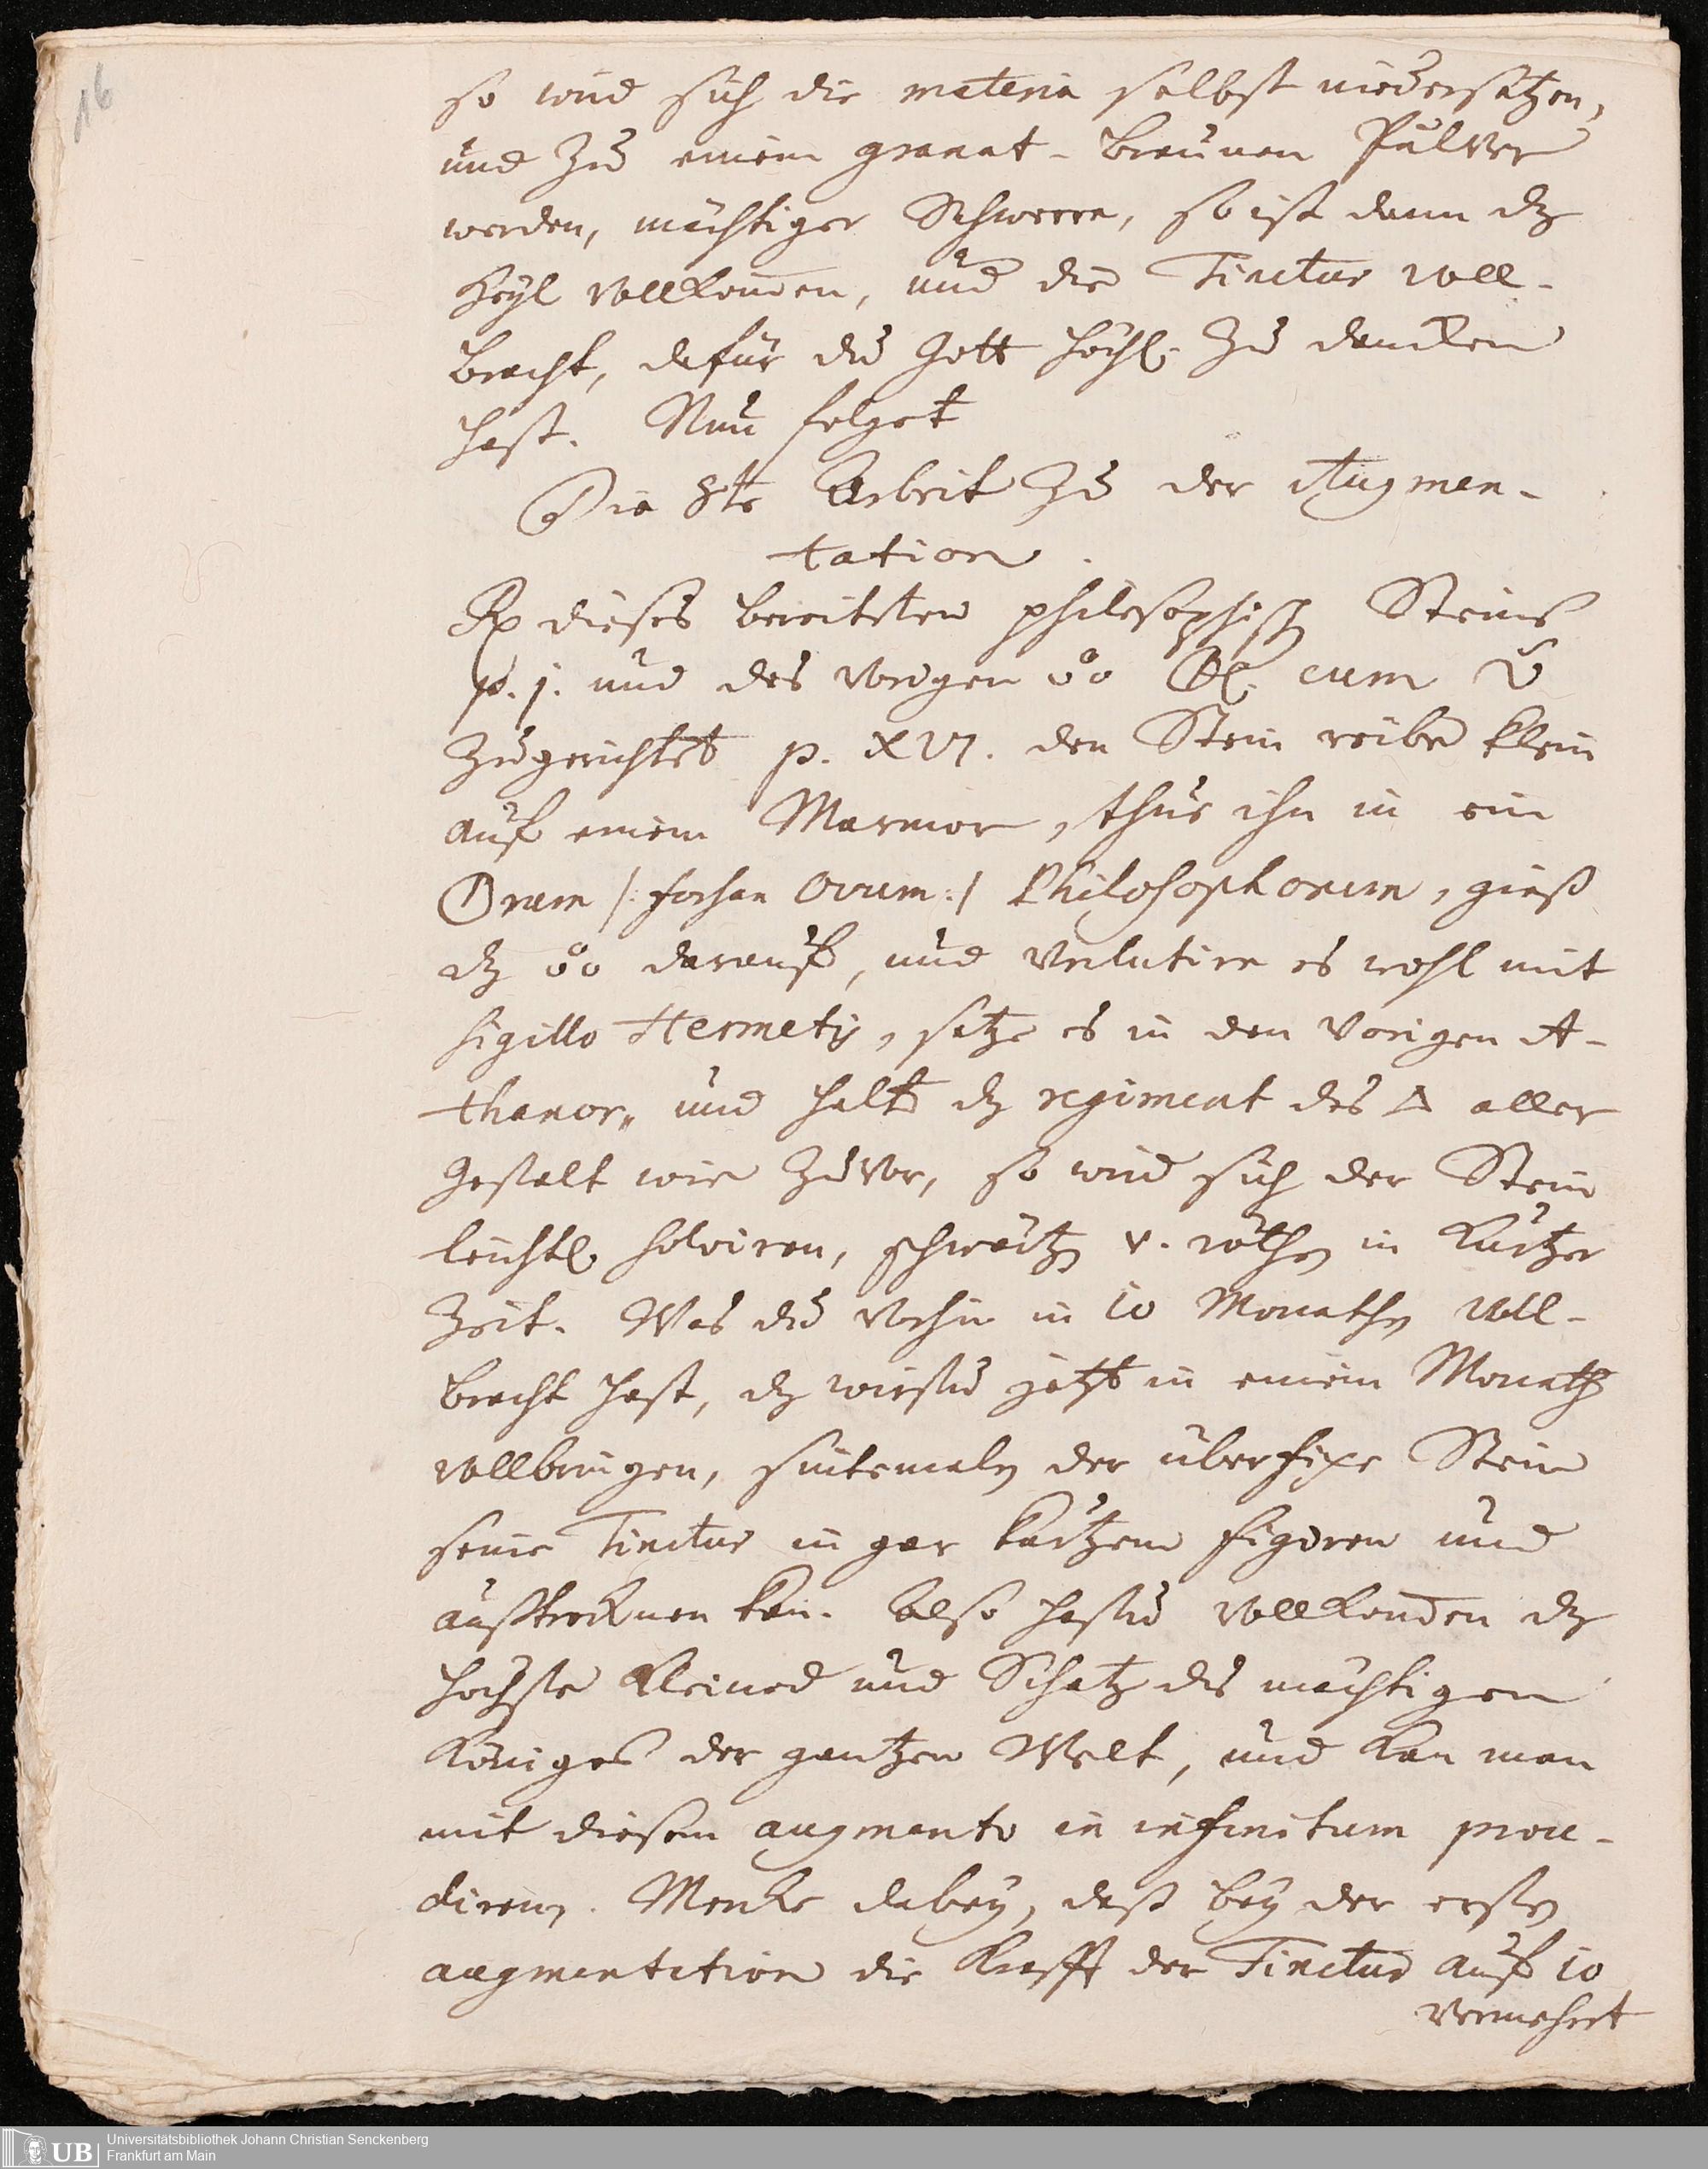 16
so wird sich die materia selbst niedersetzen,
und zu einem granat-braunen Pulver
werden, mächtiger Schwere, so ist dann dz
Heyl vollkom̄en, und die Tinctur voll-
bracht, dafür du Gott höchl. zu dancken
hast. Nun folget
Die 8te Arbeit zu der Augmen-
tation.
℞ dieses bereiteten philosophisch Steins
p. j. und des vorigen cum
zugerichtet p. XVI. den Stein reibe klein
auf einem Marmor, thue ihn in ein
Oram /: forsan Ovum :/ Philosophorum, gieß
dz darauf, und verlutire es wohl mit
sigillo Hermetis, setze es in den vorigen A-
thanor, und halte dz regiment des 🜂 aller
gestalt wie zuvor, so wird sich der Stein
leichtl. solviren, schwärtzen v. röthen in kurtzer
Zeit. Was du vorhin in 10 Monathen voll-
bracht hast, dz wirstu jetzt in einem Monath
vollbringen, sintemaln der überfixe Stein
seine Tinctur in gar kurtzem figiren und
außtrocknen kan. Also hastu vollkom̄en dz
höchste Kleinod und Schatz des mächtigen
Königes der gantzen Welt, und kan man
mit diesem augmento in infinitum proce-
diren. Mercke dabey, daß bey der ersten
augmentation die Krafft der Tinctur auf 10
vermehret
UB
Universitätsbibliothek Johann Christian Senckenberg
Frankfurt am Main